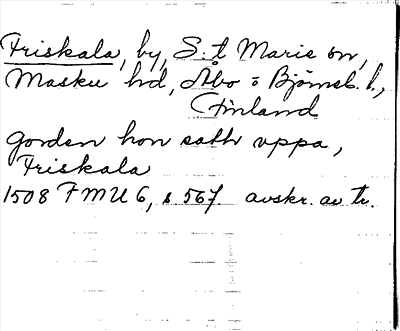 Friskala, by, S:t Marie sn,
Masku hd, Åbo o Björneb. l.,
Finland
gorden hon sath uppa,
Friskala
1508 FMU 6, s 567. avskr. av tr.